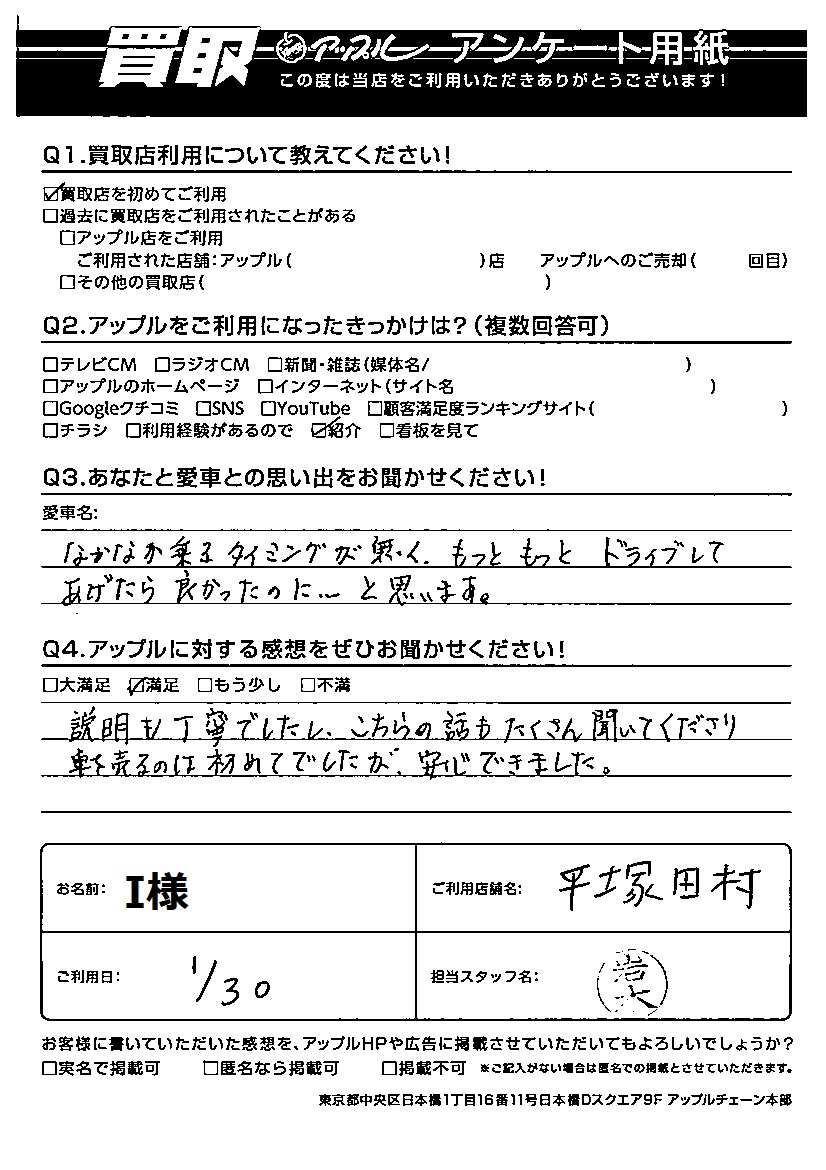 買取 アップル アンケート用紙
この度は当店をご利用いただきありがとうございます!
Q1.買取店利用について教えてください!
☑買取店を初めてご利用
□過去に買取店をご利用されたことがある
□アップル店をご利用
ご利用された店舗:アップル( )店 アップルへのご売却( 回目)
□その他の買取店( )
Q2.アップルをご利用になったきっかけは?(複数回答可)
□テレビCM □ラジオCM □新聞・雑誌(媒体名/ )
□アップルのホームページ □インターネット(サイト名 )
□Googleクチコミ □SNS □YouTube □顧客満足度ランキングサイト( )
□チラシ □利用経験があるので ☑紹介 □看板を見て
Q3.あなたと愛車との思い出をお聞かせください!
愛車名:
なかなか乗るタイミングが無く、もっともっと ドライブして
あげたら良かったのに… と思います。
Q4.アップルに対する感想をぜひお聞かせください!
□大満足 ☑満足 □もう少し □不満
説明も丁寧でしたし、こちらの話もたくさん聞いてくださり
車を売るのは初めてでしたが、安心できました。
お名前: I様 ご利用店舗名: 平塚田村
ご利用日: 1/30 担当スタッフ名: 岩
お客様に書いていただいた感想を、アップルHPや広告に掲載させていただいてもよろしいでしょうか?
□実名で掲載可 □匿名なら掲載可 □掲載不可 ※ご記入がない場合は匿名での掲載とさせていただきます。
東京都中央区日本橋1丁目16番11号日本橋Dスクエア9F アップルチェーン本部